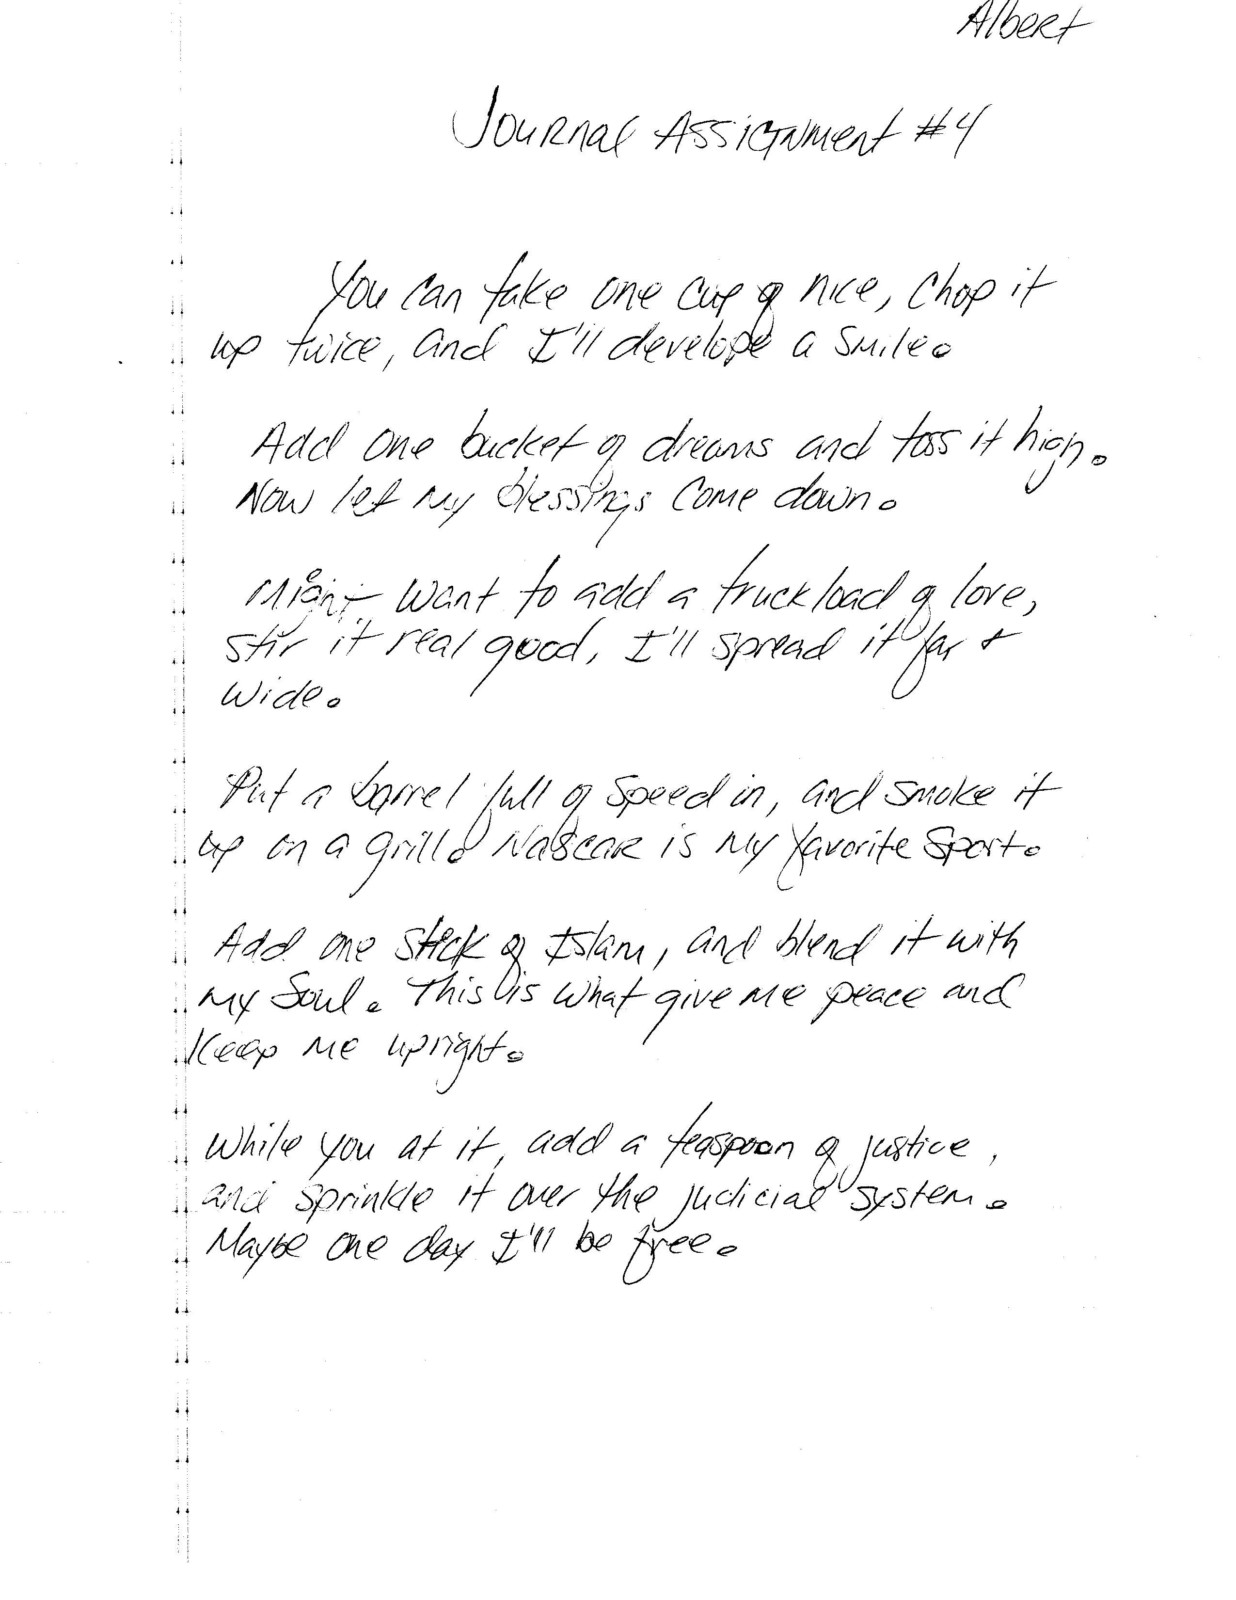 Albert
Journal Assignment #4
You can take one cup of nice, chop it
up twice, and I'll develope a smile.
Add one bucket of dreams and toss it high.
Now let my blessings come down.
Might want to add a truckload of love,
stir it real good, I'll spread it far +
wide.
Put a barrel full of speed in, and smoke it
up on a grill. Nascar is my favorite sport.
Add one stick of Islam, and blend it with
my soul. This is what give me peace and
keep me upright.
While you at it, add a teaspoon of justice,
and sprinkle it over the judicial system.
Maybe one day I'll be free.